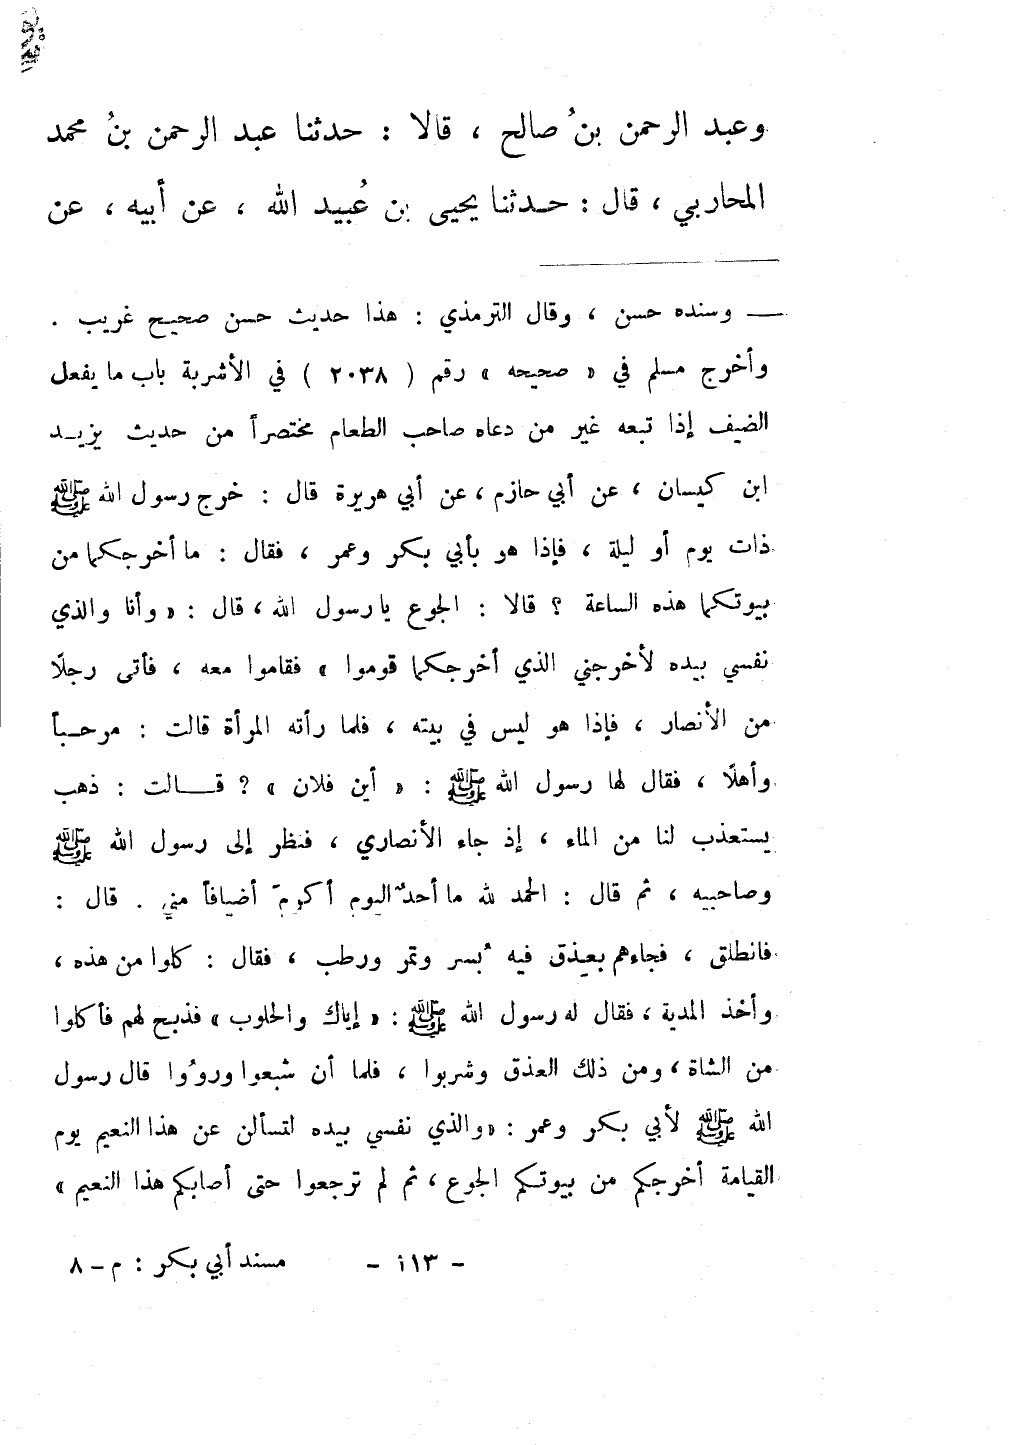 وعبد الرحمن بنُ صالح ، قالا : حدثنا عبد الرحمن بنُ محمد
المحاربي ، قال : حدثنا يحيى بن عُبيد الله ، عن أبيه ، عن
— وسنده حسن ، وقال الترمذي : هذا حديث حسن صحيح غريب .
وأخرج مسلم في « صحيحه » رقم ( ٢٠٣٨ ) في الأشربة باب ما يفعل
الضيف إذا تبعه غير من دعاه صاحب الطعام مختصراً من حديث يزيد
ابن كيسان ، عن أبي حازم ، عن أبي هريرة قال : خرج رسول الله ﷺ
ذات يوم أو ليلة ، فإذا هو بأبي بكر وعمر ، فقال : ما أخرجكما من
بيوتكما هذه الساعة ؟ قالا : الجوع يا رسول الله ، قال : « وأنا والذي
نفسي بيده لأخرجني الذي أخرجكما قوموا » فقاموا معه ، فأتى رجلًا
من الأنصار ، فإذا هو ليس في بيته ، فلما رأته المرأة قالت : مرحباً
وأهلًا ، فقال لها رسول الله ﷺ : « أين فلان » ؟ قالت : ذهب
يستعذب لنا من الماء ، إذ جاء الأنصاري ، فنظر إلى رسول الله ﷺ
وصاحبيه ، ثم قال : الحمد لله ما أحدٌ اليوم أكرمَ أضيافاً مني . قال :
فانطلق ، فجاءهم بعِذق فيه بُسر وتمر ورطب ، فقال : كلوا من هذه ،
وأخذ المدية ، فقال له رسول الله ﷺ : « إياك والحلوب » فذبح لهم فأكلوا
من الشاة ، ومن ذلك العذق وشربوا ، فلما أن شبعوا ورووُا قال رسول
الله ﷺ لأبي بكر وعمر : « والذي نفسي بيده لتسألن عن هذا النعيم يوم
القيامة أخرجكم من بيوتكم الجوع ، ثم لم ترجعوا حتى أصابكم هذا النعيم »
- ١١٣ - مسند أبي بكر : م - ٨